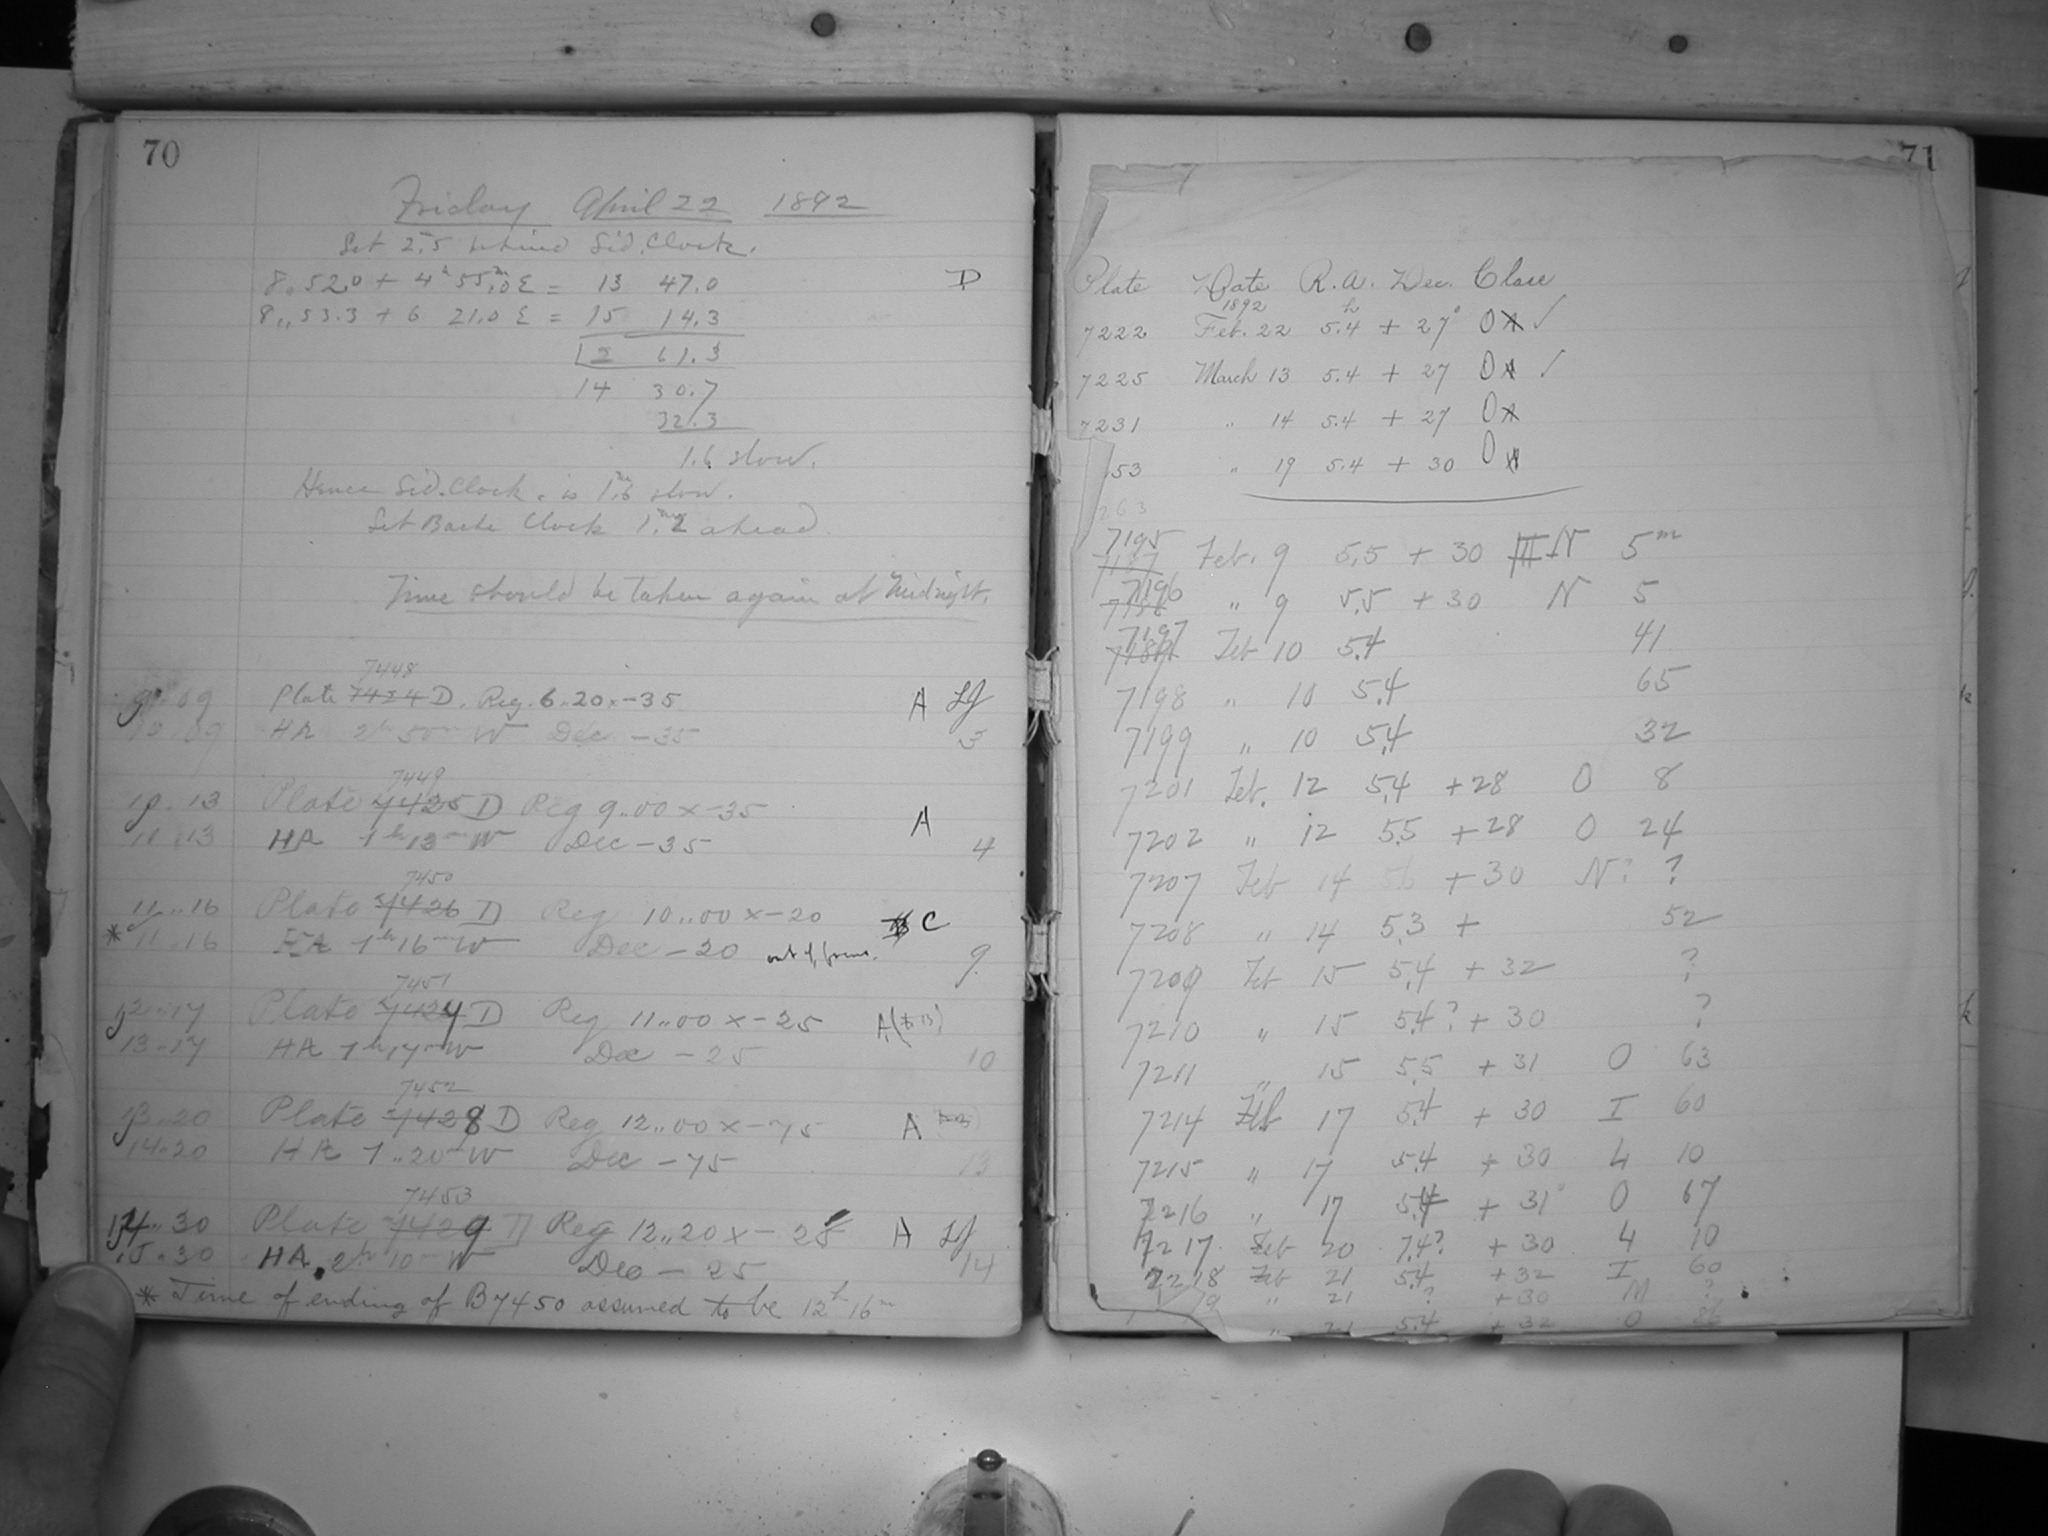 70
Friday April 22 1892
Set 2.5 behind Sid. Clock.
8..52.0 + 4h 55m.0 E = 13 47.0 D
8..53.3 + 6 21.0 E = 15 14.3
2 61.3
14 30.7
32.3
1.6 slow.
Hence Sid. Clock. is 1m.6 slow.
Set Clock 1m.2 ahead.
Time should be taken again at Midnight.
7448
9..09 Plate 7424 D. Reg. 6..20 x -35 A
10..09 HA 2h 50m W Dec -35 3
7449
10..13 Plate 7425 D Reg 9..00 x -35 A
11..13 HA 1h 13m W Dec -35 4
7450
11..16 Plate 7426 D Reg 10..00 x -20 C
* 11..16 HA 1h 16m W Dec -20 out of focus. 9
7451
12..17 Plate 7427 D Reg 11..00 x -25 A
13..17 HA 1h 17m W Dec -25 10
7452
13..20 Plate 7428 D Reg 12..00 x -75 A
14..20 HA 1..20m W Dec -75 13
7453
14..30 Plate 7429 D Reg 12..20 x -25 A
15..30 HA. 2h 10m W Dec -25 14
* Time of ending of B7450 assumed to be 12h 16m
71
Plate Date R.A. Dec. Class
1892 h
7222 Feb. 22 5.4 + 27° O A ✓
7225 March 13 5.4 + 27 O A ✓
7231 " 14 5.4 + 27 O A
53 " 19 5.4 + 30 O A
263
7195
7187 Feb. 9 5.5 + 30 III N 5m
7196
" 9 5.5 + 30 N 5
7197
Feb 10 5.4 41
7198 " 10 5.4 65
7199 " 10 5.4 32
7201 Feb. 12 5.4 +28 O 8
7202 " 12 5.5 +28 O 24
7207 Feb 14 5.6 +30 N? ?
7208 " 14 5.3 + 52
7209 Feb 15 5.4 + 32 ?
7210 " 15 5.4? + 30 ?
7211 " 15 5.5 + 31 O 63
7214 Feb 17 5.4 + 30 I 60
7215 " 17 5.4 + 30 4 10
7216 " 17 5.4 + 31° O 67
7217 Feb 20 7.4? + 30 4 10
7218 Feb 21 5.4 +32 I 60
19 " 21 ? +30 M ?
" 21 5.4 + 32 O 86